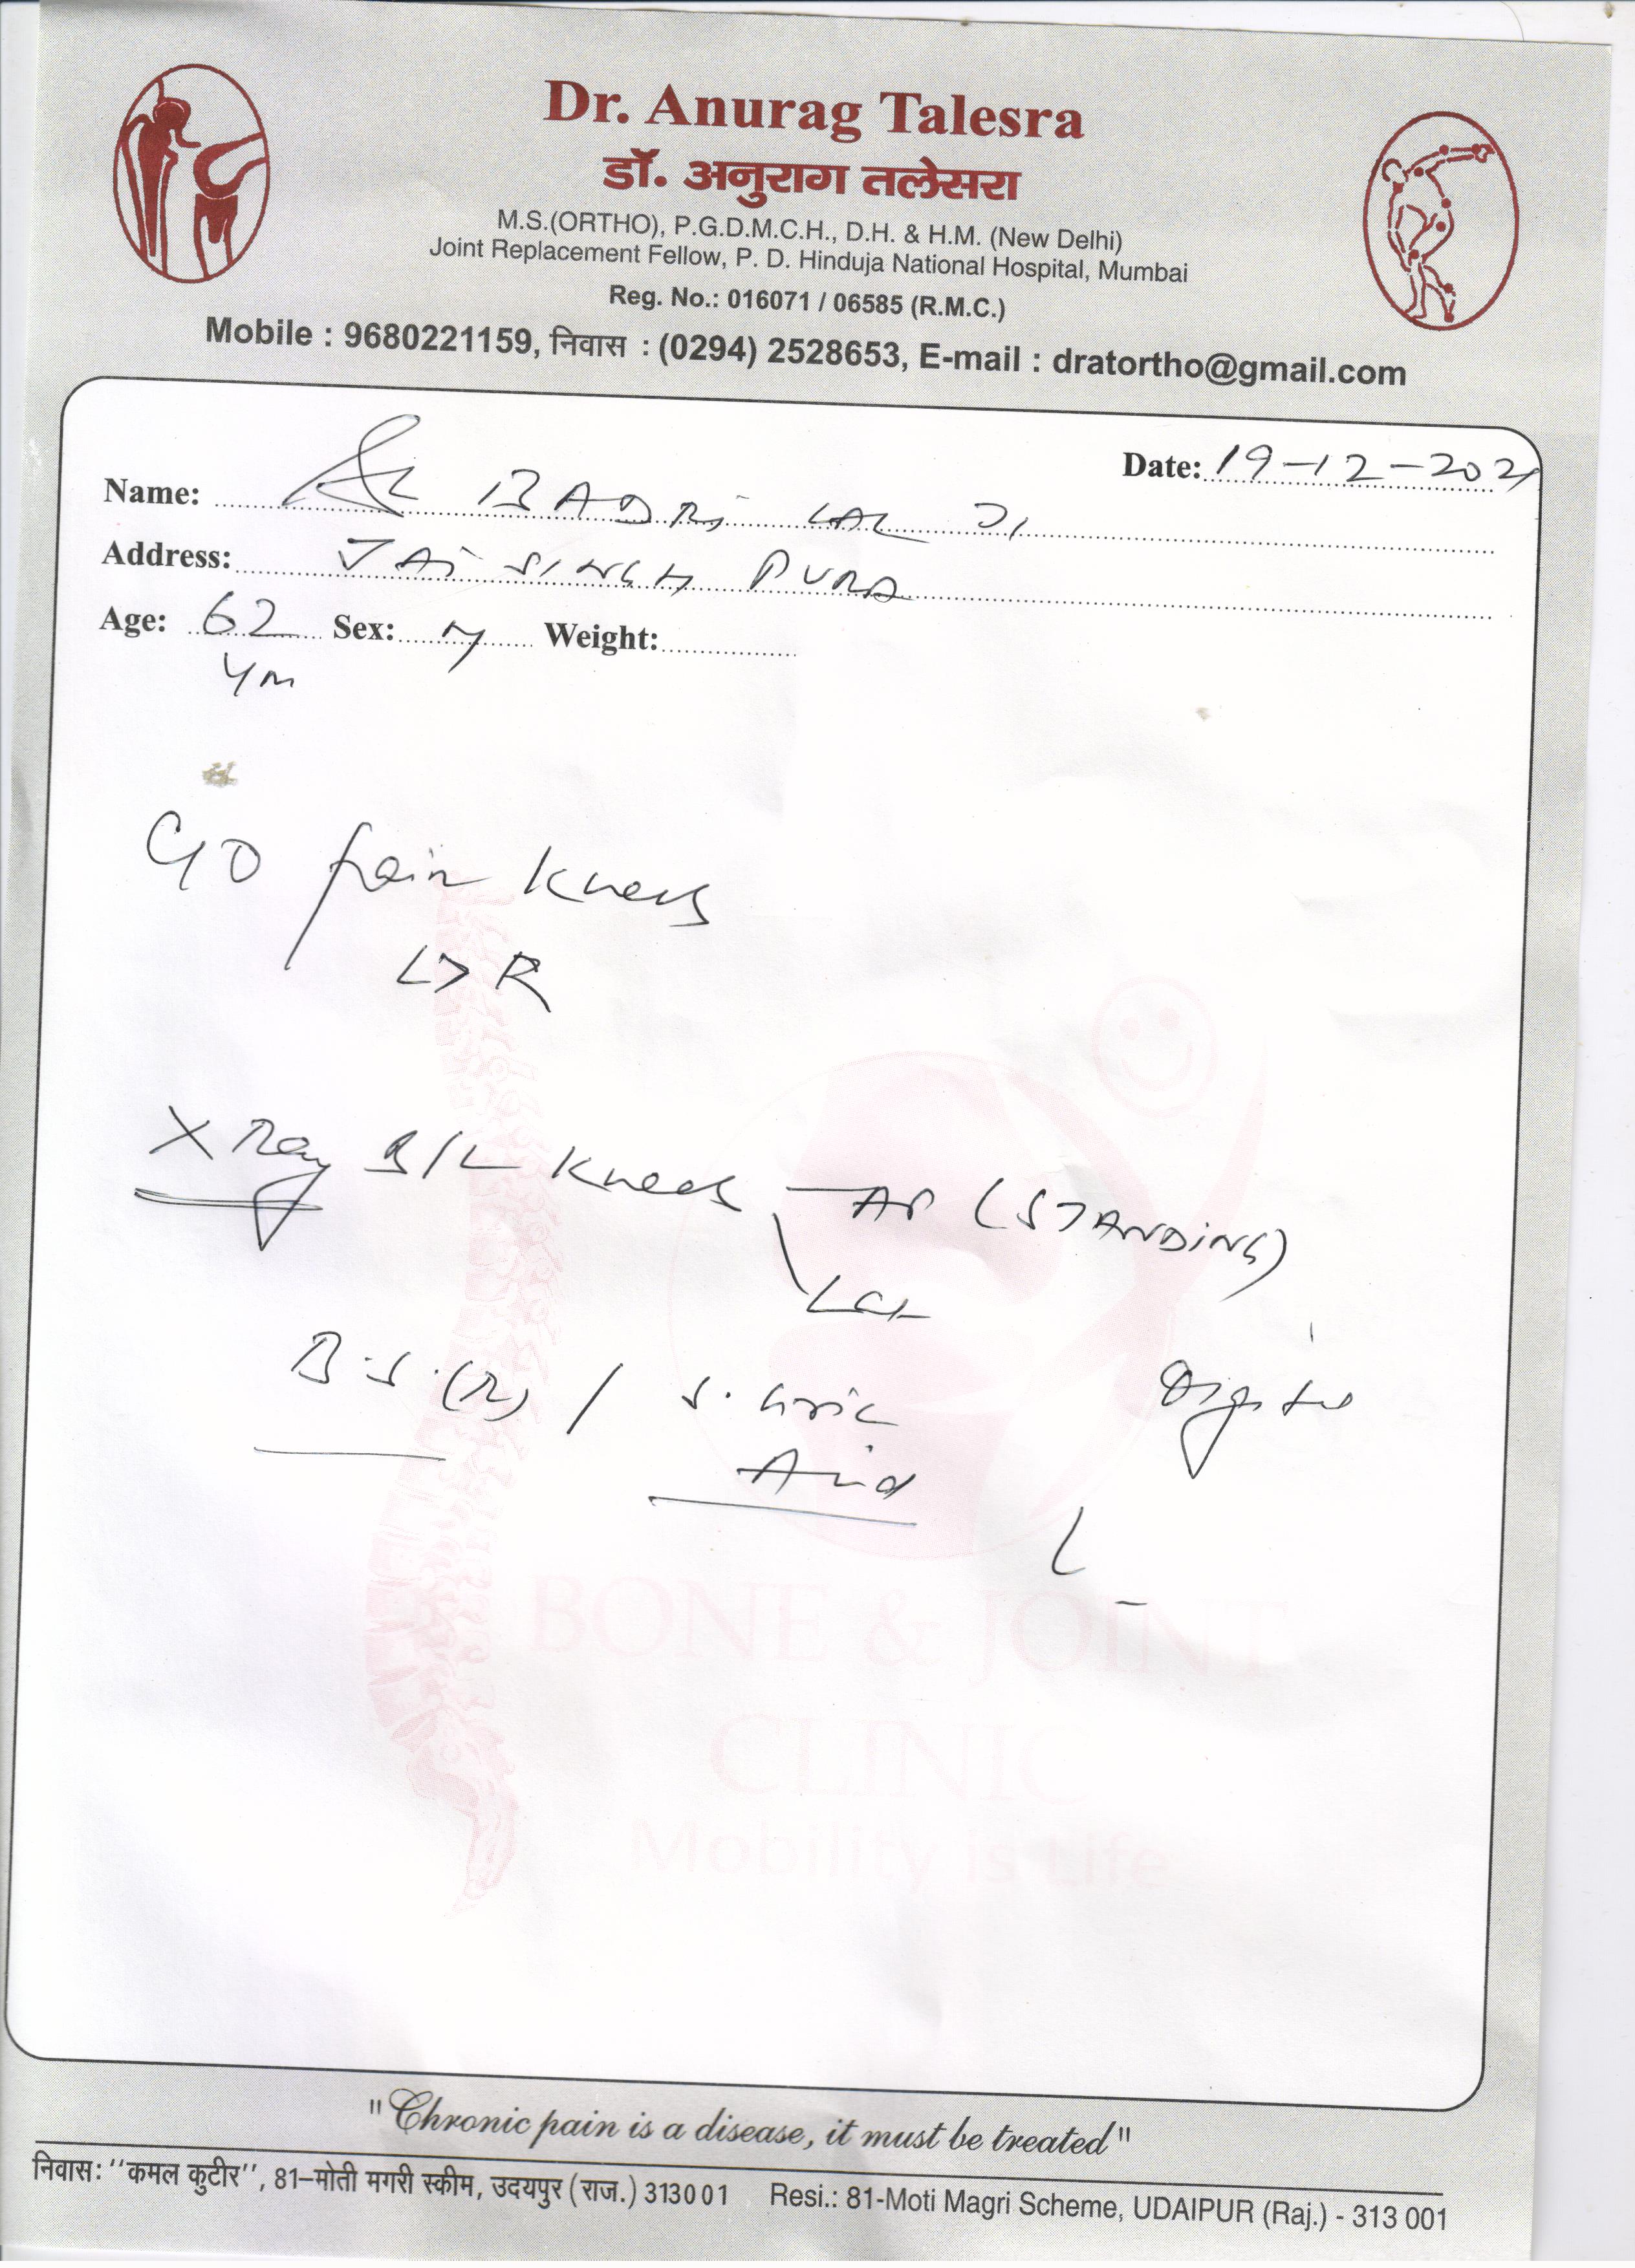 Dr. Anurag Talesra
डॉ. अनुराग तलेसरा
M.S.(ORTHO), P.G.D.M.C.H., D.H. & H.M. (New Delhi)
Joint Replacement Fellow, P. D. Hinduja National Hospital, Mumbai
Reg. No.: 016071 / 06585 (R.M.C.)
Mobile : 9680221159, निवास : (0294) 2528653, E-mail : dratortho@gmail.com
Date: 19-12-2021
Name: BADRi LAL JI
Address: JAi SINGH PURA
Age: 62 Sex: M Weight:
C/O pain knees
L>R
X Ray B/L knees AP (STANDiNG)
Lat
B.S.(R) / S. Uric
Acid
Digital
BONE & JOINT
CLINIC
Mobility is Life
"Chronic pain is a disease, it must be treated"
निवास: ‘‘कमल कुटीर’’, 81–मोती मगरी स्कीम, उदयपुर (राज.) 313001 Resi.: 81-Moti Magri Scheme, UDAIPUR (Raj.) - 313 001